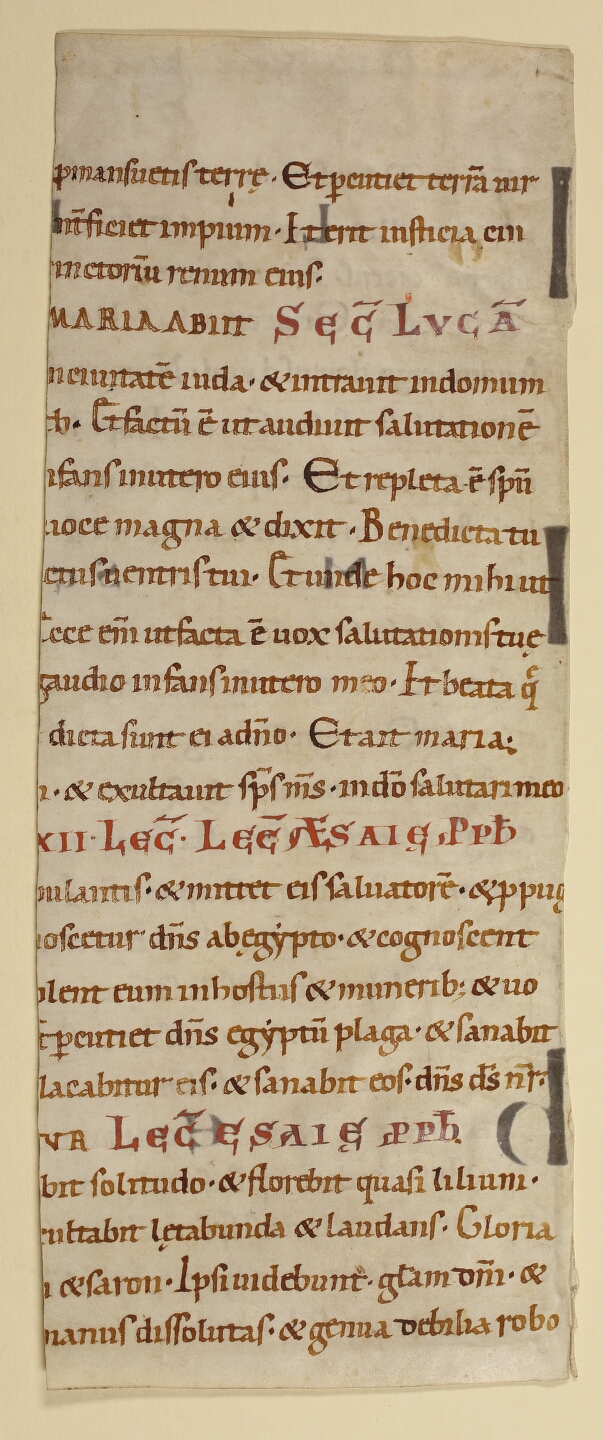 p mansuetis terrę · Et ꝑcutiet terrā uir
int̄ficiet impium · Et erit iusticia ein
inctoriū renum eius ·
MARIA ABIIT SEC̄ LVCĀ
n ciuitatē iuda · & intrauit in domum
th · Et factū ē ut audiuit salutationē
ifans in utero eius · Et repleta ē sp̄u
uoce magna & dixit · Benedicta tu
ctus uentris tui · Et unde hoc mihi ut
Ecce em̄ ut facta ē uox salutationis tuę
gaudio infans in utero meo · Et beata q̄
dicta sunt ei a dn̄o · Et ait maria ·
i · & exultauit sp̄s ms̄ · in dō salutari meo
XII · LEC̄ · LEC̄ ÆSAIĘ PPH
pulantis · & mittet eis saluatorē · & ppug
oscetur dn̄s ab ęgypto · & cognoscent
olent eum in hostiis & munerib; & uo
t ꝑcutiet dn̄s egyptū plaga · & sanabit
lacabitur eis · & sanabit eos · dn̄s ds̄ nr̄ ·
VA LEC̄ ESAIĘ PPH ·
bit solitudo · & florebit quasi lilium ·
cultabit lętabunda & laudans · Gloria
i & saron · Ipsi uidebunt · glam dn̄i · &
manus dissolutas · & genua debilia robo